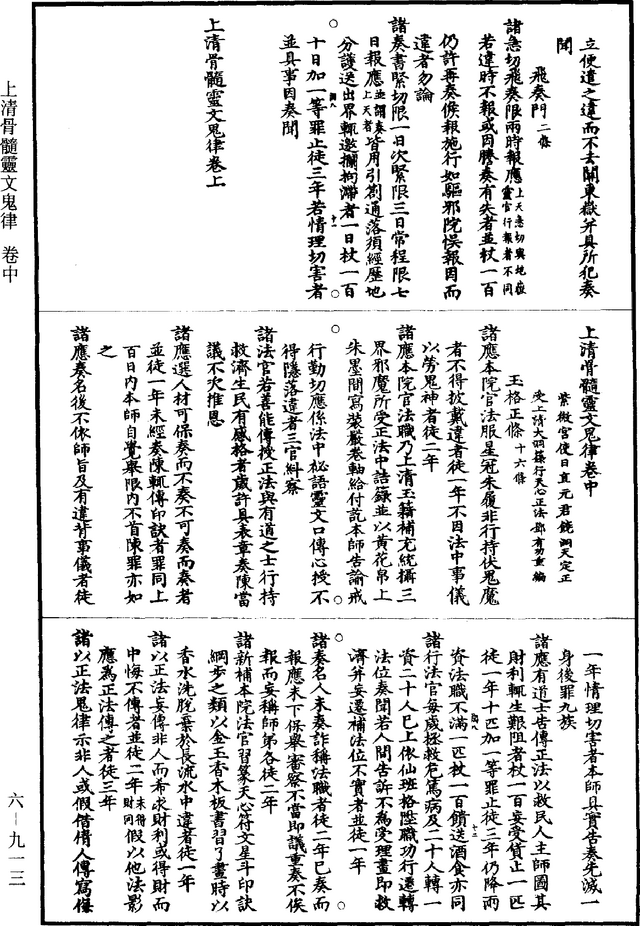 立便遣之違而不去關東嶽并具所犯奏
聞
飛奏門二條
諸急切飛奏限兩時報應上天急切與地應靈官行報者不同
若違時不報或因謄奏有失者並杖一百
仍許再奏候報施行如驅邪院悞報因而
違者勿論
諸奏書緊切限一日次緊限三日常程限七
日報應並謂奏上天者皆用引劄通落須經歷地
分護送出界輒邀攔拘滯者一日杖一百
十日加一等罪止徒三年若情理切害者
並具事因奏聞
上清骨髓靈文鬼律卷上
上清骨髓靈文鬼律 卷中
上清骨髓靈文鬼律卷中
紫微宮使日直元君饒洞天定正
受上清大洞籙行天心正法鄧有功重編
玉格正條十六條
諸應本院官法服星冠朱履非行持伏鬼魔
者不得披戴違者徒一年不因法中事儀
以勞鬼神者徒二年
諸應本院官法職乃上清玉籍補充統攝三
界邪魔所受正法中語籙並以黃花帛上
朱墨間寫裝嚴卷軸給付訖本師告諭戒
行勤切應係法中秘語靈文口傳心授不
得隱落違者三官糾察
諸法官若善能傳授正法與有道之士行持
救濟生民有感格者歲許具表章奏陳當
議不次推恩
諸應選人材可保奏而不奏不可奏而奏者
並徒一年未經奏陳輒傳印訣者罪同上
百日內本師自覺舉限內不首陳罪亦如
之
諸應奏名後不依師旨及有違背事儀者徒
一年情理切害者本師具實告奏先滅一
身後罪九族
諸應有道士告傳正法以救民人主師圖其
財利輒生艱阻者杖一百妄受貨止一匹
徒一年十匹加一等罪止徒三年仍降兩
資法職不滿一匹杖一百饋送酒食亦同
諸行法官每歲拯救危篤病及二十人轉一
資二十人已上依仙班格陞職功行遷轉
法位奏聞若人間告訴不為受理盡即救
濟并妄遷補法位不實者並徒一年
諸奏名人未奏詐稱法職者徒二年已奏而
報應未下保舉審察不當即議重奏不俟
報而妄稱師第各徒二年
諸新補本院法官習篆天心符文星斗印訣
綱步之類以金玉香木板書習了晝時以
香水洗脫棄於長流水中違者徒一年
諸以正法妄傳非人而希求財利或得財而
中悔不傳者並徒二年未得財同假以他法影
應為正法傳之者徒三年
諸以正法鬼律示非人或假借情人傳寫條
六－九一三